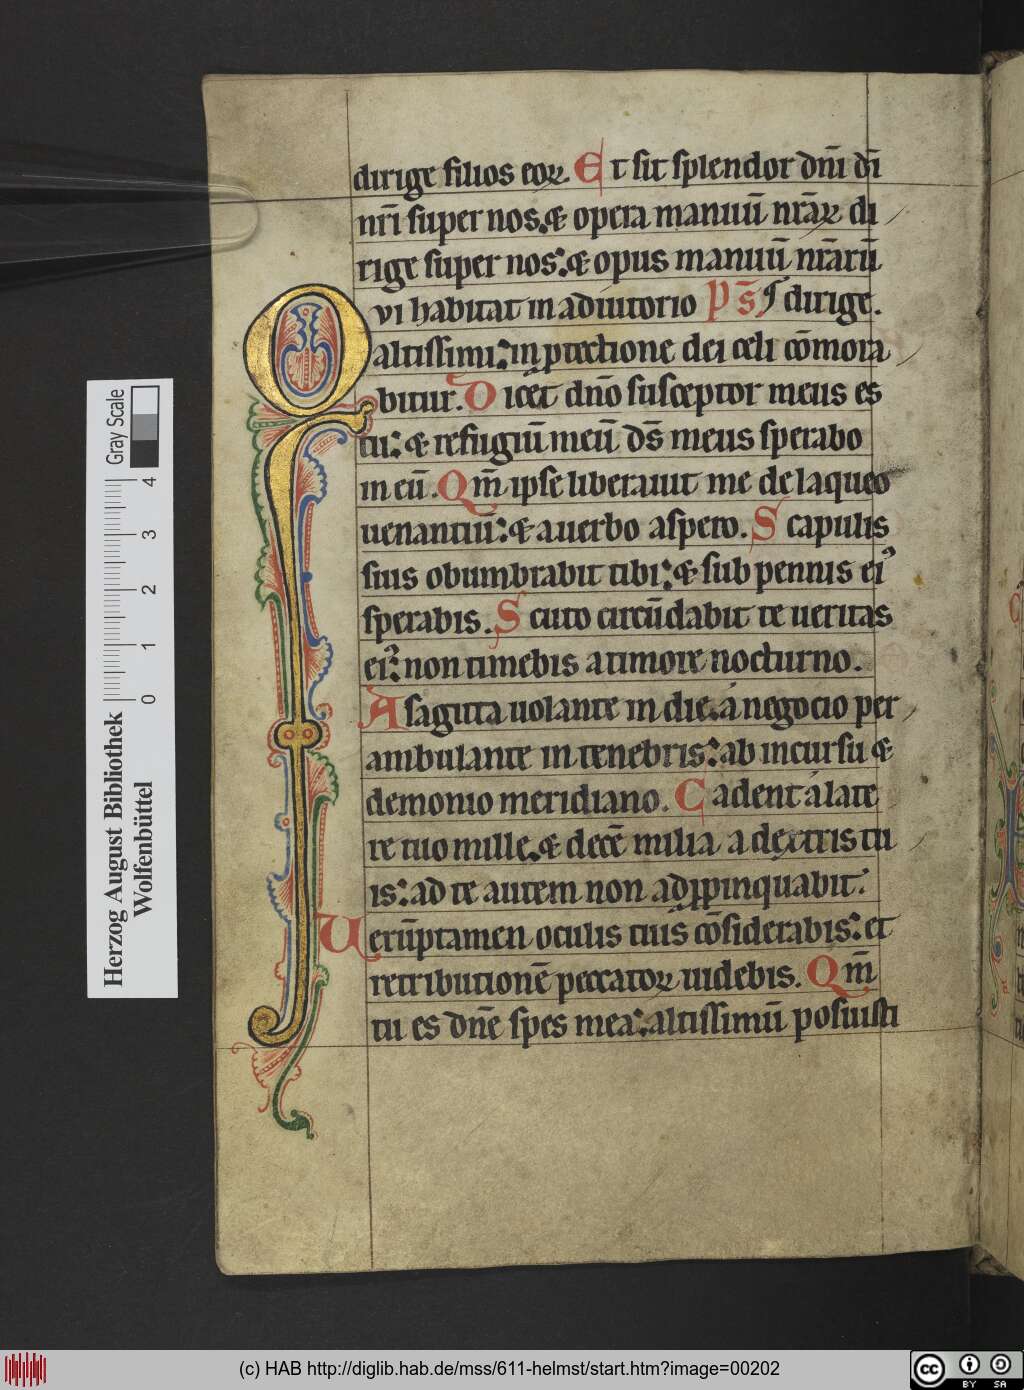 dirige filios eoꝝ. Et sit splendor dñi dī
nr̄i super nos.⁊ opera manuū nr̄aꝝ di
rige super nos:⁊ opus manuū nr̄arū
Qvi habitat in adiutorio Ps̄ dirige.
altissimi:in ꝓtectione dei celi cōmora
bitur. Dicet dn̄o susceptor meus es
tu:⁊ refugiū meū ds̄ meus sperabo
in eū. Qm̄ ipse liberauit me de laqueo
uenantiū:⁊ a uerbo aspero. Scapulis
suis obumbrabit tibi:⁊ sub pennis eiꝰ
sperabis. Scuto circūdabit te ueritas
eiꝰ: non timebis a timore nocturno.
A sagitta uolante in die.a negocio per
ambulante in tenebris:ab incursu ⁊
demonio meridiano. Cadent a late
re tuo mille.⁊ decē milia a dextris tu
is:ad te autem non adꝓpinquabit.
Uerūptamen oculis tuis cōsiderabis:et
retributionē peccatoꝝ uidebis. Qm̄
tu es dn̄e spes mea:altissimū posuisti
Herzog August Bibliothek
Wolfenbüttel
0 1 2 3 4
Gray Scale
(c) HAB http://diglib.hab.de/mss/611-helmst/start.htm?image=00202
cc BY SA